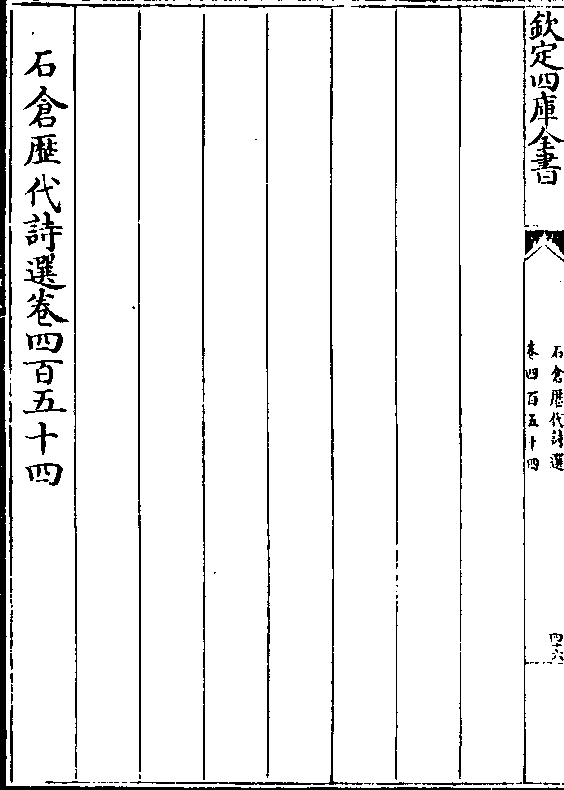 欽定四庫全書
石倉歴代詩選
卷四百五十四
四十六
石倉歴代詩選卷四百五十四